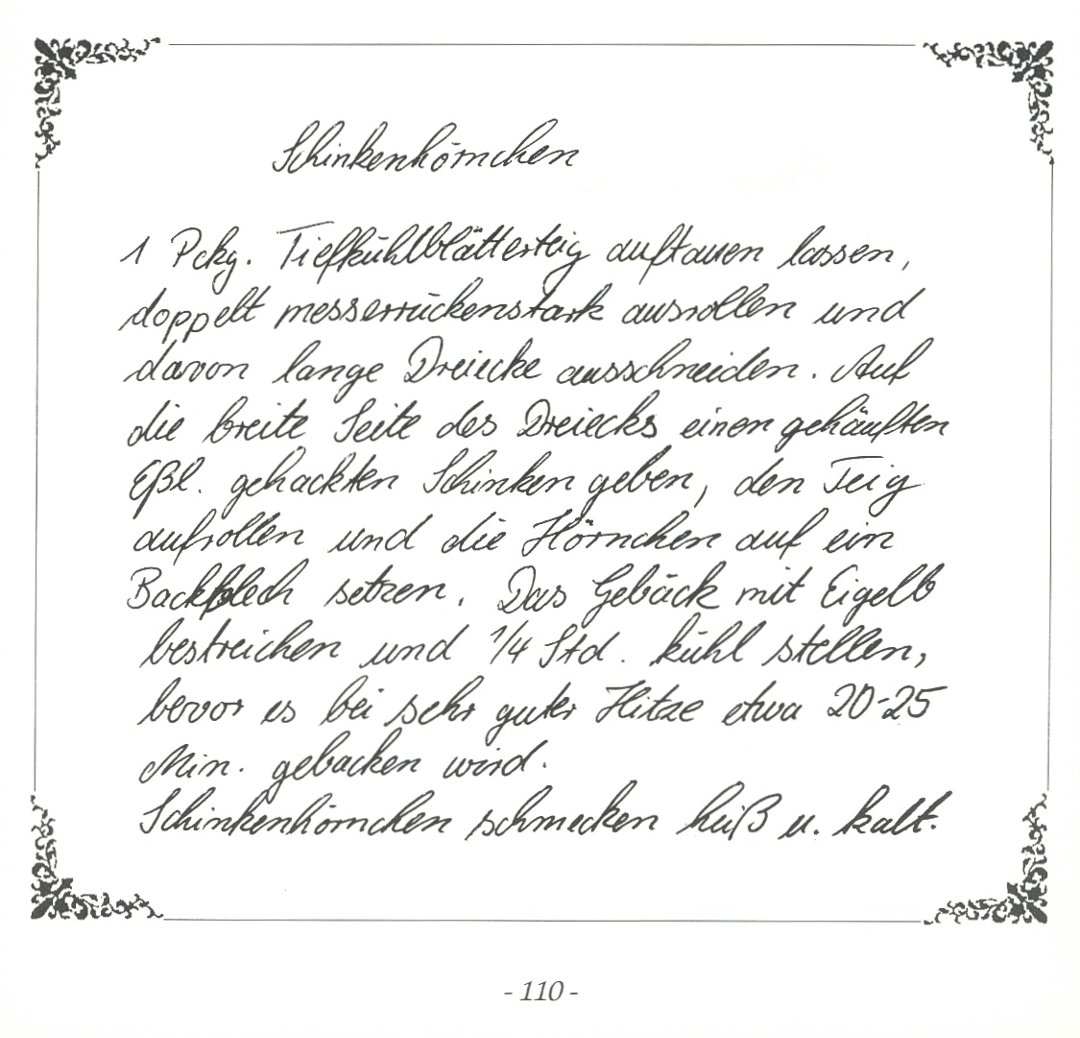 Schinkenhörnchen
1 Pckg. Tiefkühlblätterteig auftauen lassen,
doppelt messerrückenstark ausrollen und
davon lange Dreiecke ausschneiden. Auf
die breite Seite des Dreiecks einen gehäuften
Eßl. gehackten Schinken geben, den Teig
aufrollen und die Hörnchen auf ein
Backblech setzen. Das Gebäck mit Eigelb
bestreichen und 1/4 Std. kühl stellen,
bevor es bei sehr guter Hitze etwa 20-25
Min. gebacken wird.
Schinkenhörnchen schmecken heiß u. kalt.
- 110 -